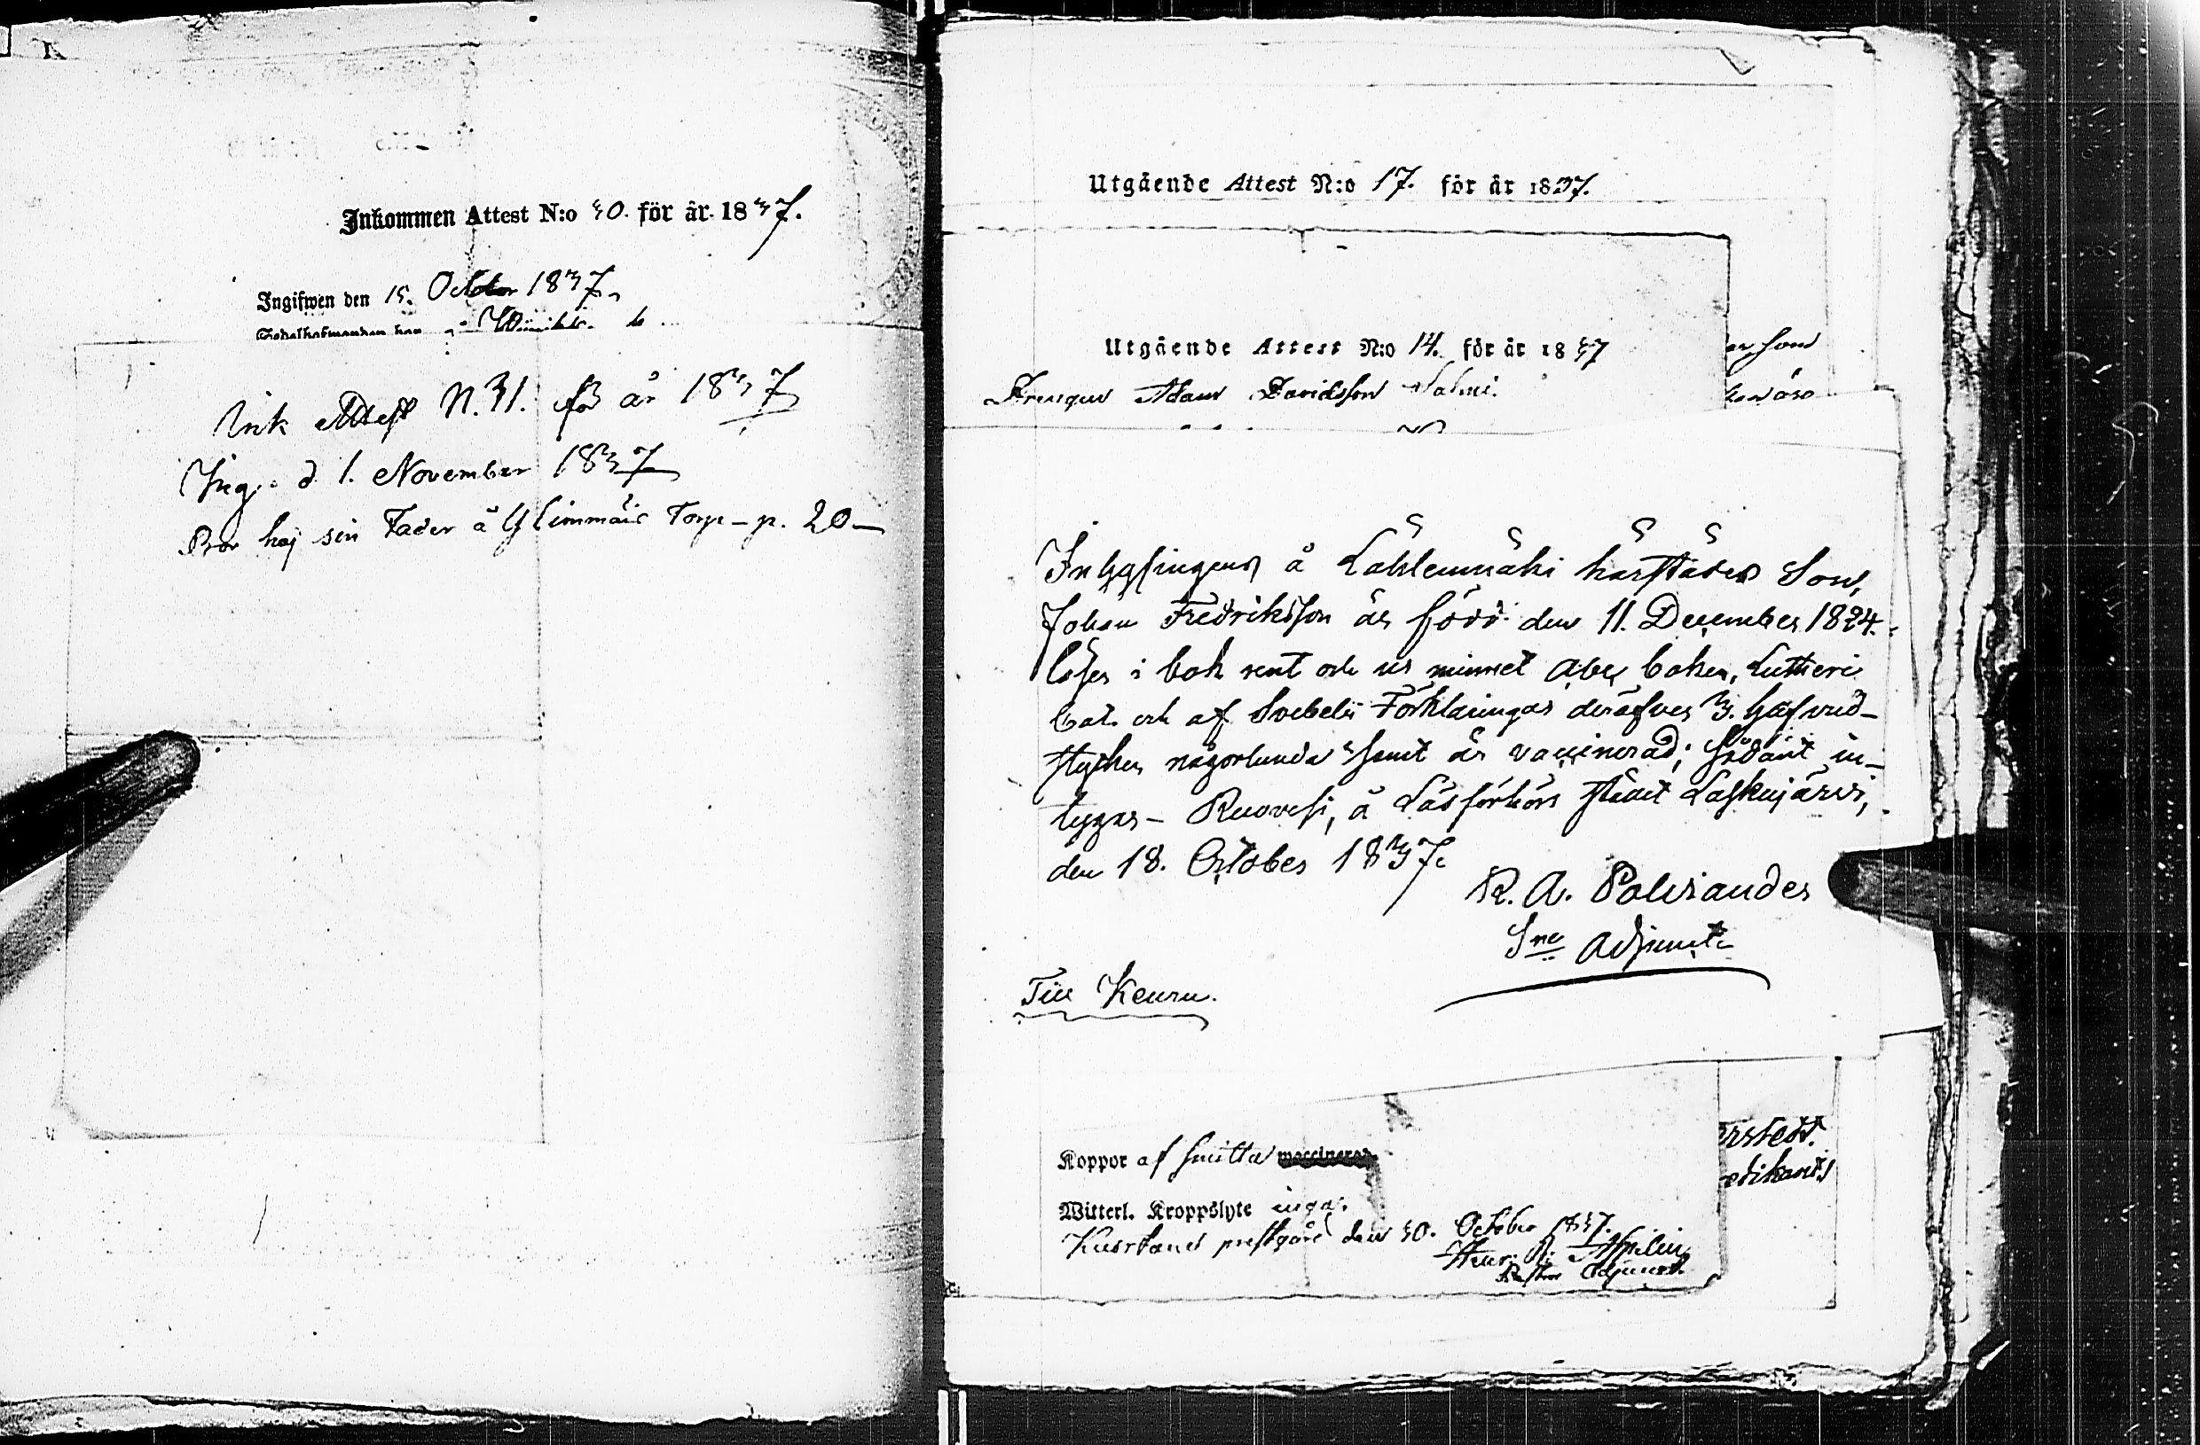 Inkommen Attest N:o 30. för år 1837.
Ingifwen den 15. October 1837.
Ink Attest N. 31. för år 1837
Ing. d. 1. November 1837
Bor hoj sin Fader å Torp – p. 20 –
Utgående Attest N:o 17. för år 1837.
Utgående Attest N:o 14. för år 1837
Drengen Adam Davidsson Salmi.
Inhysingens å Lahdenmäki härstädes Son,
Johan Fredriksson är född den 11. December 1824.
läser i bok rent och ur minnet Abc boken, Lutheri
Cat. och af Svebelii Förklaringar deröfver 3. hufvud-
stycken någorlunda samt är vaccinerad; sådant in-
tygas – Ruovesi, å Läsförhörs stället Laskujärvi,
den 18. October 1837.
R. A. Polviander
Sne Adjunct.
Till Keuru.
Koppor af smitta
Witterl. Kroppslyte inga.
prestgård den 30. October 1837.
Adjunct.